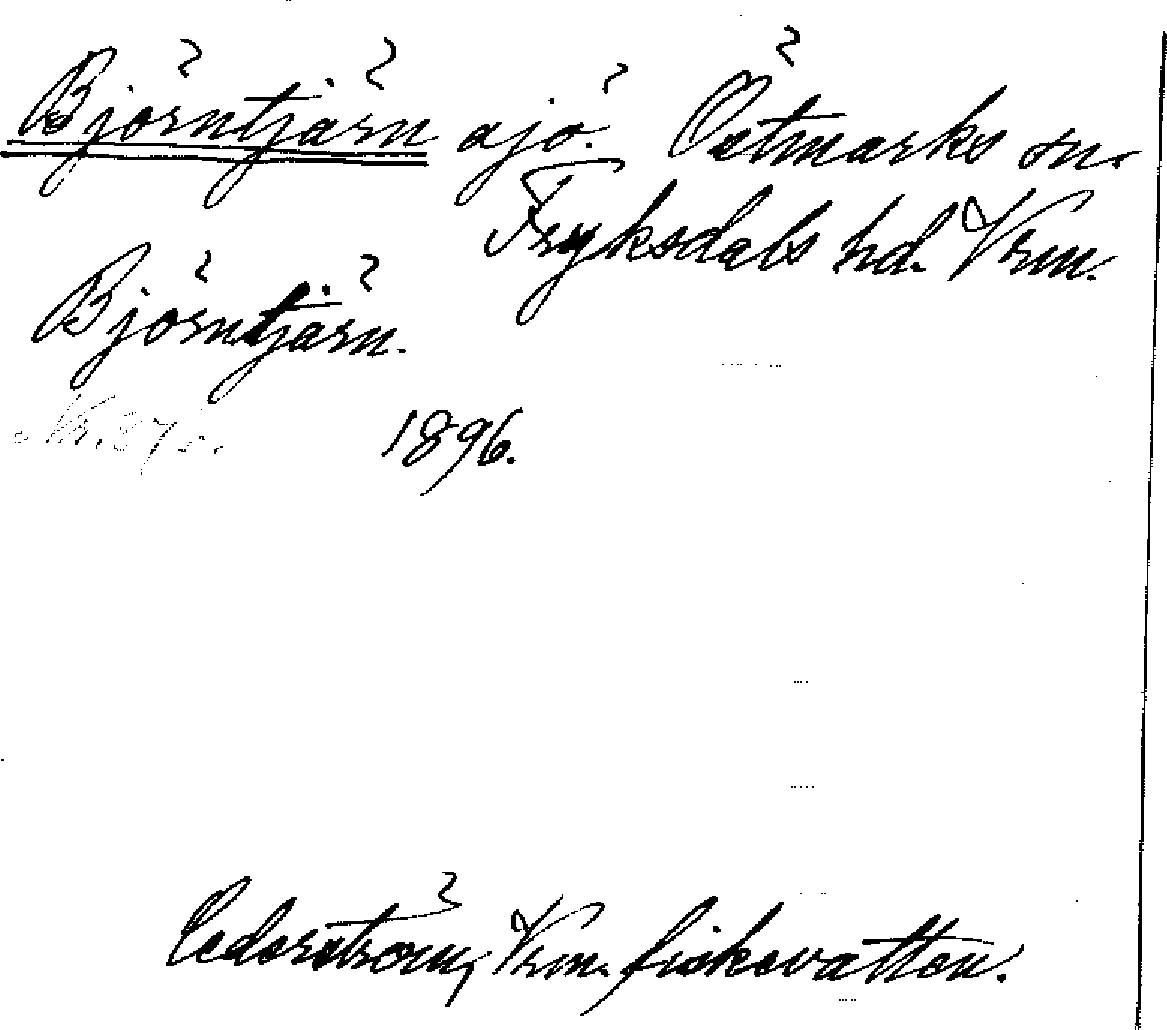 Björntjärn sjö. Östmarks sn.
Fryksdals hd. Vrm.
Björntjärn.
1896.
Cederström, Vrm. fiskevatten.